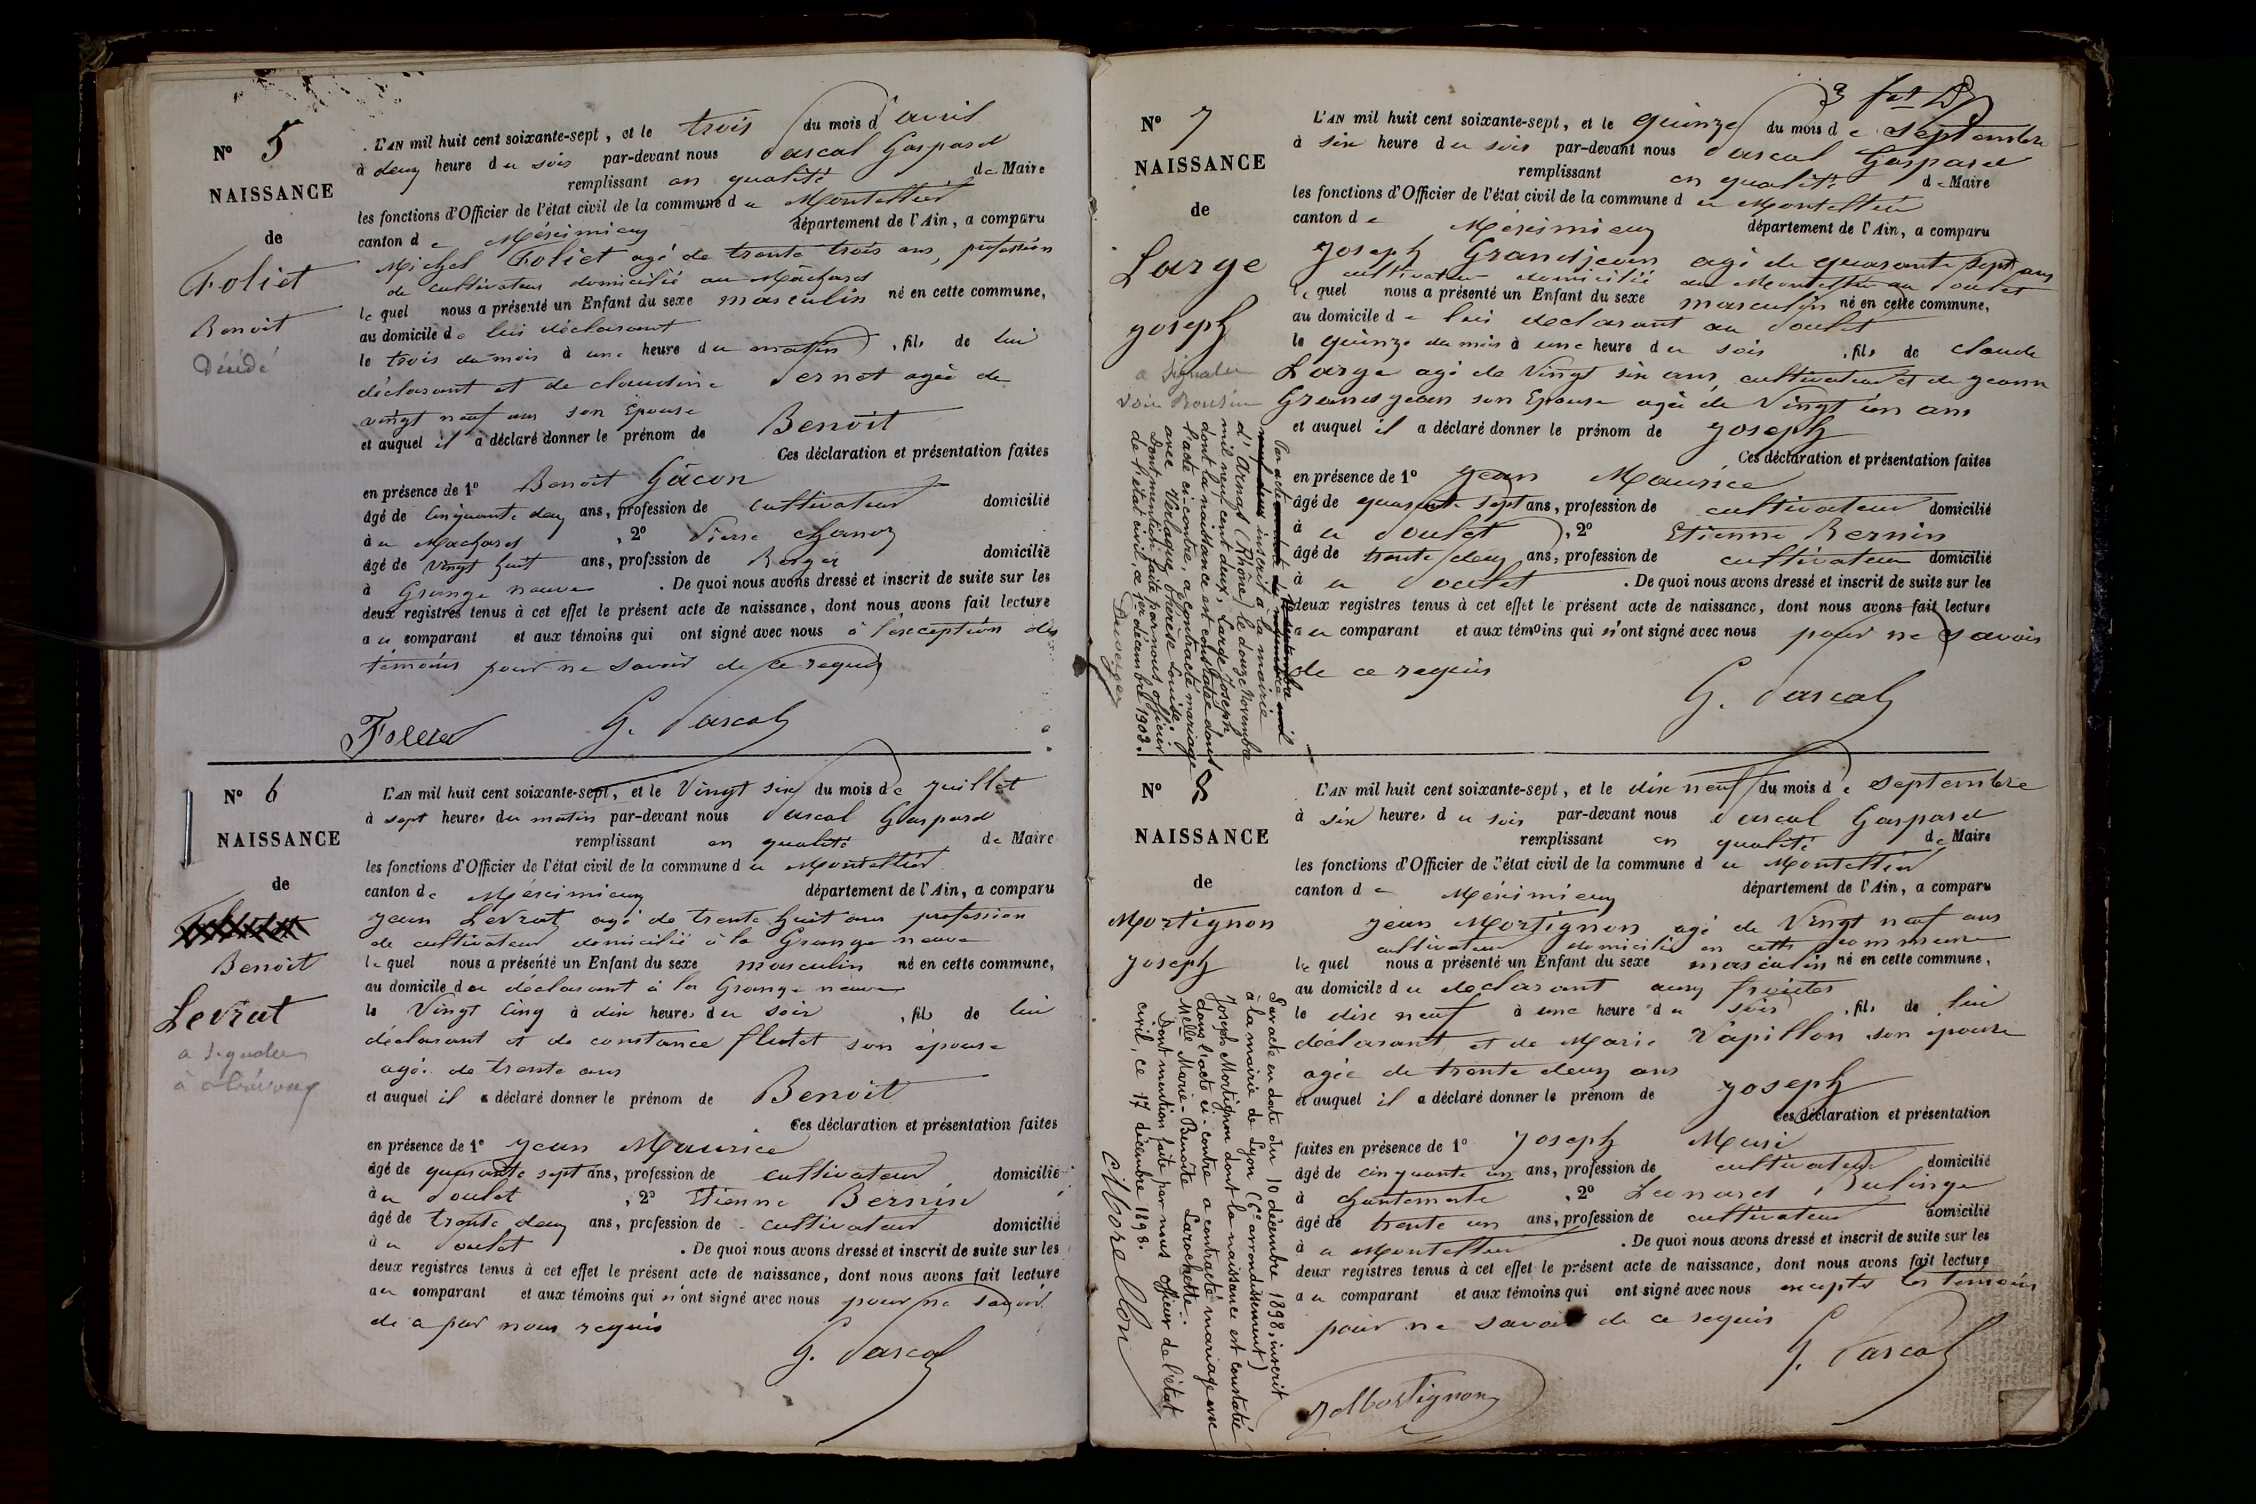 N° 5
NAISSANCE
de
Foliet
Benoit
Décédé
L'AN mil huit cent soixante-sept, et le trois du mois d'avril
à deux heure du soir par-devant nous Pascal Gaspard
remplissant en qualité de Maire
les fonctions d'Officier de l'état civil de la commune de Montellier
canton de Méximieux département de l'Ain, a comparu
Michel Foliet agé de trente trois ans, profession
de cultivateur domicilié au Mâchard
lequel nous a présenté un Enfant du sexe masculin né en cette commune,
au domicile de lui déclarant
le trois du mois à une heure du matin, fils de lui
déclarant et de claudine Pernet agée de
vingt neuf ans son Epouse
et auquel il a déclaré donner le prénom de Benoit
Ces déclaration et présentation faites
en présence de 1° Benoit Gâcon
âgé de cinquante deux ans, profession de cultivateur domicilié
à u Machard, 2° Pierre chanoz
âgé de vingt huit ans, profession de Berger domicilié
à Grange neuve. De quoi nous avons dressé et inscrit de suite sur les
deux registres tenus à cet effet le présent acte de naissance, dont nous avons fait lecture
au comparant et aux témoins qui ont signé avec nous à l'exception des
témoins pour ne savoir de ce requis
Foliet G. Pascal
N° 6
NAISSANCE
de
Benoit
Levrat
a signaler
L'AN mil huit cent soixante-sept, et le Vingt six du mois de juillet
à sept heures du matin par-devant nous Pascal Gaspard
remplissant en qualité de Maire
les fonctions d'Officier de l'état civil de la commune du Montellier
canton de Méximieux département de l'Ain, a comparu
jean Levrat agé de trente huit ans profession
de cultivateur domicilié à la Grange neuve
lequel nous a présenté un Enfant du sexe masculin né en cette commune,
au domicile du déclarant à la Grange neuve
le Vingt cinq à dix heures du soir, fils de lui
déclarant et de constance flutet son épouse
agée de trente ans
et auquel il a déclaré donner le prénom de Benoit
Ces déclaration et présentation faites
en présence de 1° jean Maurice
âgé de quarante sept ans, profession de cultivateur domicilié
à u Poulet, 2° Etienne Bernin
âgé de trente deux ans, profession de cultivateur domicilié
à u Poulet. De quoi nous avons dressé et inscrit de suite sur les
deux registres tenus à cet effet le présent acte de naissance, dont nous avons fait lecture
au comparant et aux témoins qui n'ont signé avec nous pour ne savoir
de a par nous requis
G. Pascal
N° 7
NAISSANCE
de
Large
joseph
a signaler
L'AN mil huit cent soixante-sept, et le quinze du mois de septembre
à six heure du soir par-devant nous Pascal Gaspard
remplissant en qualité de Maire
les fonctions d'Officier de l'état civil de la commune du Montellier
canton de Méximieux département de l'Ain, a comparu
joseph Grandjean agé de quarante sept ans
cultivateur domicilié au Montellier au Poulet
lequel nous a présenté un Enfant du sexe masculin né en cette commune,
au domicile de lui declarant au Poulet
le quinze du mois à une heure du soir, fils de claude
Large agé de vingt six ans, cultivateur et de jeanne
Grandjean son Epouse agée de Vingt un ans
et auquel il a déclaré donner le prénom de joseph
Ces déclaration et présentation faites
en présence de 1° jean Maurice
âgé de quarante sept ans, profession de cultivateur domicilié
à u Poulet, 2° Etienne Bernin
âgé de trente deux ans, profession de cultivateur domicilié
à u Poulet. De quoi nous avons dressé et inscrit de suite sur les
deux registres tenus à cet effet le présent acte de naissance, dont nous avons fait lecture
au comparant et aux témoins qui n'ont signé avec nous pour ne savoir
de ce requis
G. Pascal
inscrit à la mairie
d'Arnas (Rhône) le douze Novembre
mil neuf cent deux, Large Joseph
dont la naissance est constatée dans
l'acte ci-contre, a contracté mariage
avec Verlaque, Thérèse Louise.
Dont mention faite par nous officier
de l'état civil, ce 1er décembre 1902.
N° 8
NAISSANCE
de
Mortignon
joseph
L'AN mil huit cent soixante-sept, et le dix neuf du mois de septembre
à six heures du soir par-devant nous Pascal Gaspard
remplissant en qualité de Maire
les fonctions d'Officier de l'état civil de la commune du Montellier
canton de Méximieux département de l'Ain, a comparu
jean Mortignon agé de Vingt neuf ans
cultivateur domicilié en cette commune
lequel nous a présenté un Enfant du sexe masculin né en cette commune,
au domicile du declarant aux
le dix neuf à une heure du soir, fils de lui
déclarant et de Marie Papillon son épouse
agée de trente deux ans
et auquel il a déclaré donner le prénom de joseph
Ces déclaration et présentation
faites en présence de 1° joseph
âgé de cinquante un ans, profession de cultivateur domicilié
à, 2° Leonard
âgé de trente un ans, profession de cultivateur domicilié
à u Montellier. De quoi nous avons dressé et inscrit de suite sur les
deux registres tenus à cet effet le présent acte de naissance, dont nous avons fait lecture
au comparant et aux témoins qui ont signé avec nous excepté les temoins
pour ne savoir de ce requis
G. Pascal
J Mortignon
Par acte en date du 10 décembre 1898, inscrit
à la mairie de Lyon (6e arrondissement)
Joseph Mortignon dont la naissance est constatée
dans l'acte ci-contre a contracté mariage avec
Melle Marie-Benoîte Larochette.
Dont mention faite par nous officier de l'état
civil, ce 17 décembre 1898.